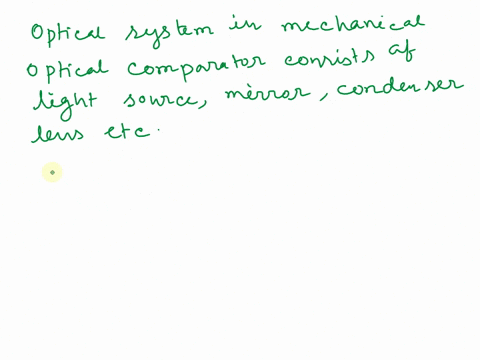 Optical system in mechanical
Optical comparator consists of
light source, mirror, condenser
lens etc.